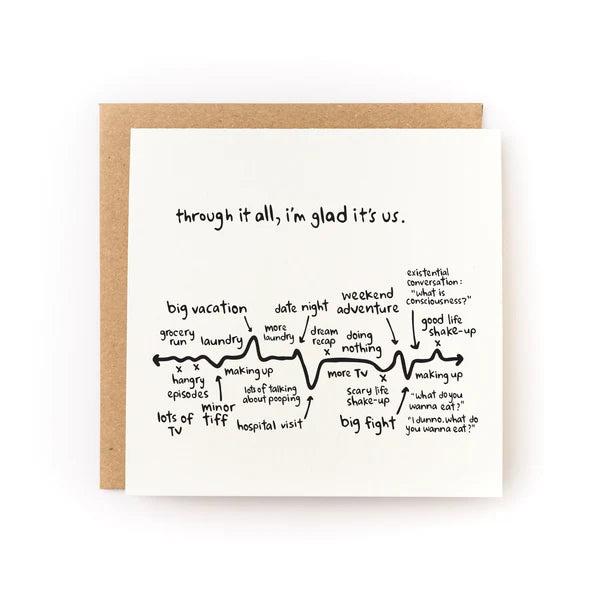 through it all, i'm glad it's us.
existential
conversation:
"what is
consciousness?"
big vacation
date night
weekend
adventure
good life
shake-up
grocery
run
laundry
more
laundry
dream
recap
x
doing
nothing
x
x x
hangry
episodes
making up
lots of talking
about pooping
more TV
x
scary life
shake-up
making up
lots of
TV
minor
tiff
hospital visit
big fight
"what do you
wanna eat?"
"I dunno. what do
you wanna eat?"